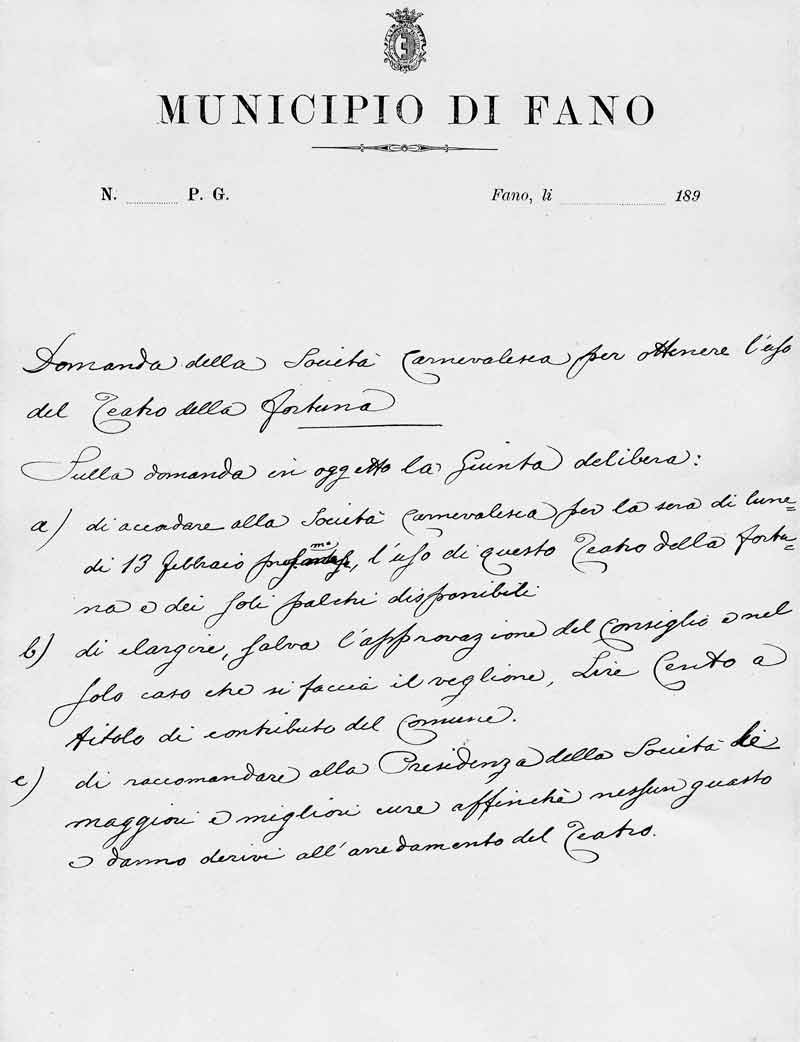 MUNICIPIO DI FANO
N. P. G. Fano, li 189
Domanda della Società Carnevalesca per ottenere l'uso
del Teatro della Fortuna
Sulla domanda in oggetto la Giunta delibera:
a) di accordare alla Società Carnevalesca per la sera di lune=
di 13 febbraio pross.mo, l'uso di questo Teatro della Fortu=
na e dei soli palchi disponibili
b) di elargire, salva l'approvazione del Consiglio e nel
solo caso che si faccia il veglione, Lire Cento a
titolo di contributo del Comune.
c) di raccomandare alla Presidenza della Società le
maggiori e migliori cure affinchè nessun guasto
e danno derivi all'arredamento del Teatro.